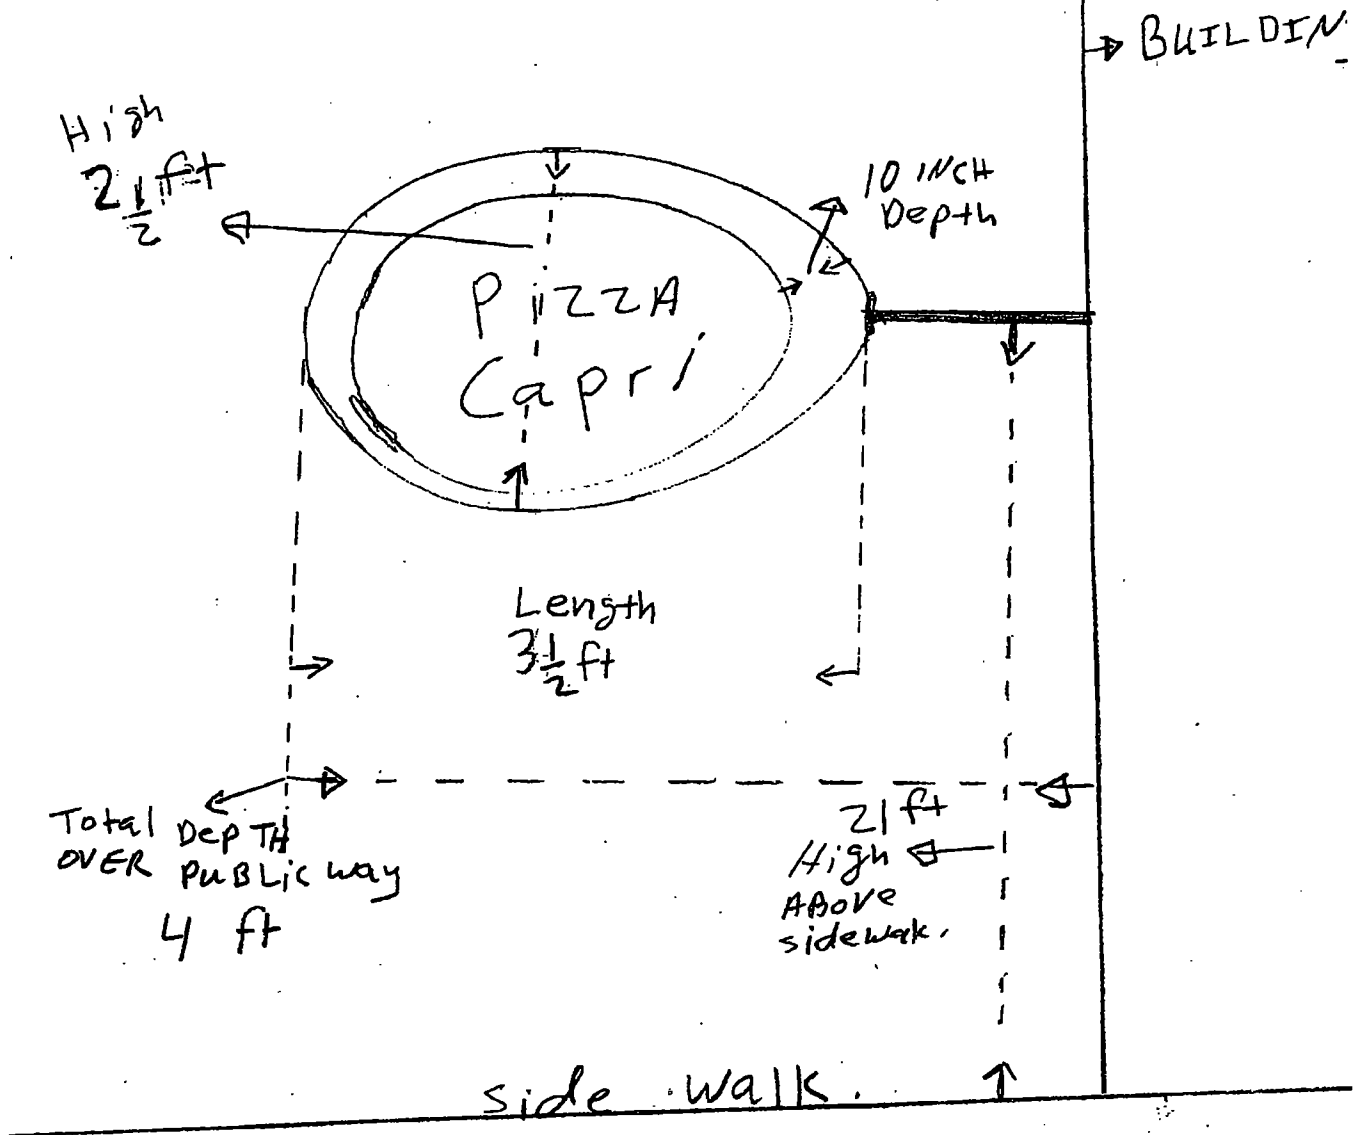 BUILDIN
High
2 1/2 ft
10 INCH
Depth
PizzA
Capri
Length
3 1/2 ft
Total DepTH
OVER PuBLic way
4 ft
21 ft
High
ABove
sidewak.
side walk.